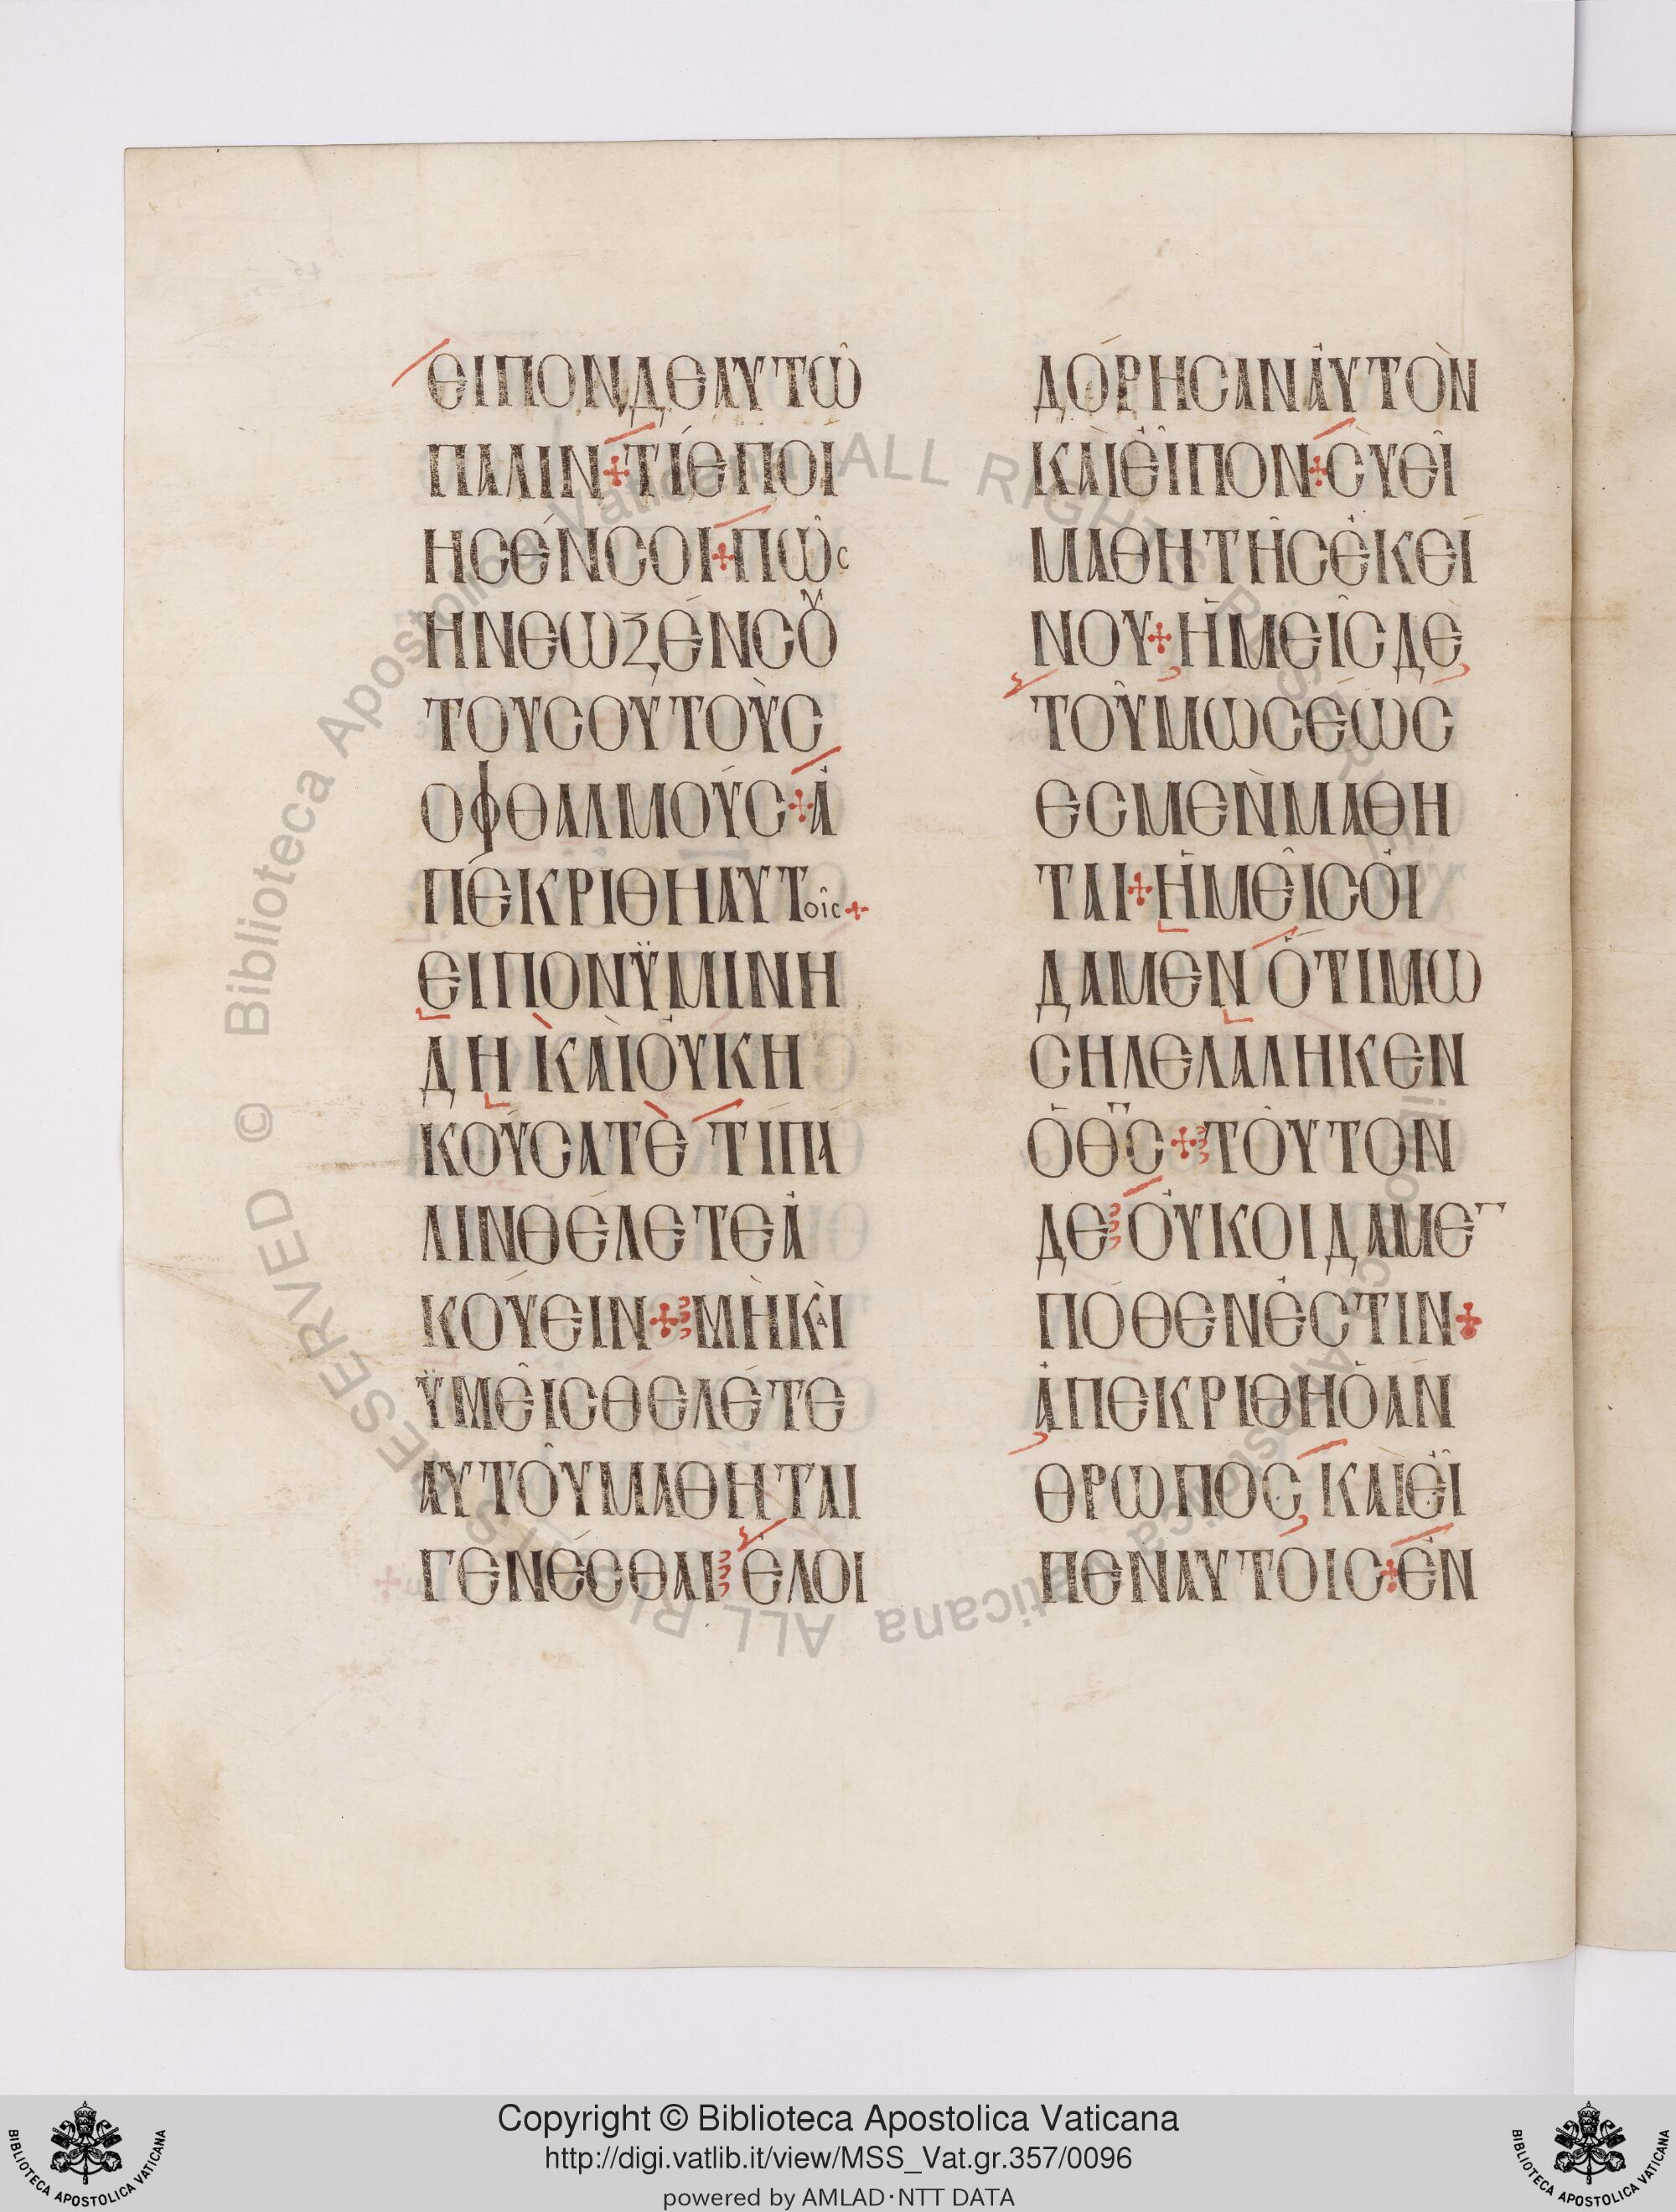 ΕΙΠΟΝΔΕΑΥΤΩ͂
ΠΑΛΙΝ+ΤΊΕΠΟΊ
ΗΣΈΝΣΟΙ+ΠΩ͂ς
ΗΝΕΩΞΈΝΣȢ
ΤΟΥΣΟΥ͂ΤΟῪΣ
ΟΦΘΑΛΜΟΎΣ+Ἀ
ΠΕΚΡΙΘΗΑΥΤοῖς+
ΕΙΠΟΝΫΜΙΝΗ
ΔΗ ΚΑῚΟΥΚΗ
ΚΟΎΣΑΤΕ ΤΊΠΑ
ΛΙΝΘΈΛΕΤΕἈ
ΚΟΎΕΙΝ+ΜῊΚαῚ
ΫΜΕΙ͂ΣΘΕΛΈΤΕ
ΑΥΤΟΥ͂ΜΑΘΗΤΑΙ
ΓΕΝΈΣΘΑΙ ἘΛΟΙ
ΔΌΡΗΣΑΝἈΥΤῸΝ
ΚᾺΙΕἾΠΟΝ+ΣῪΕΙ͂
ΜΑΘΗΤῊΣἘΚΕΊ
ΝΟΥ+ἩΜΕΙ͂ΣΔῈ
ΤΟΥ͂ΜΩΣΈΩΣ
ΕΣΜῈΝΜΑΘΗ
ΤΑΙ+ἩΜΕΙ͂ΣὈΙ
ΔΑΜΕΝ ὍΤΙΜΩ
ΣΗΛΕΛΆΛΗΚΕΝ
ὉΘ̅Σ̅+ΤΟΥ͂ΤΟΝ
ΔΕ ὈΥΚΟΙΔΑΜΕ¯
ΠΌΘΕΝἘΣΤΙΝ+
ἈΠΕΚΡΙΘΗὉἌΝ
ΘΡΩΠΟΣ ΚΑῚΕἾ
ΠΕΝΑΥΤΟΙΣ+ἘΝ
Copyright © Biblioteca Apostolica Vaticana
http://digi.vatlib.it/view/MSS_Vat.gr.357/0096
powered by AMLAD·NTT DATA
BIBLIOTECA APOSTOLICA VATICANA
BIBLIOTECA APOSTOLICA VATICANA
© Biblioteca Apostolica Vaticana ALL RIGHTS RESERVED